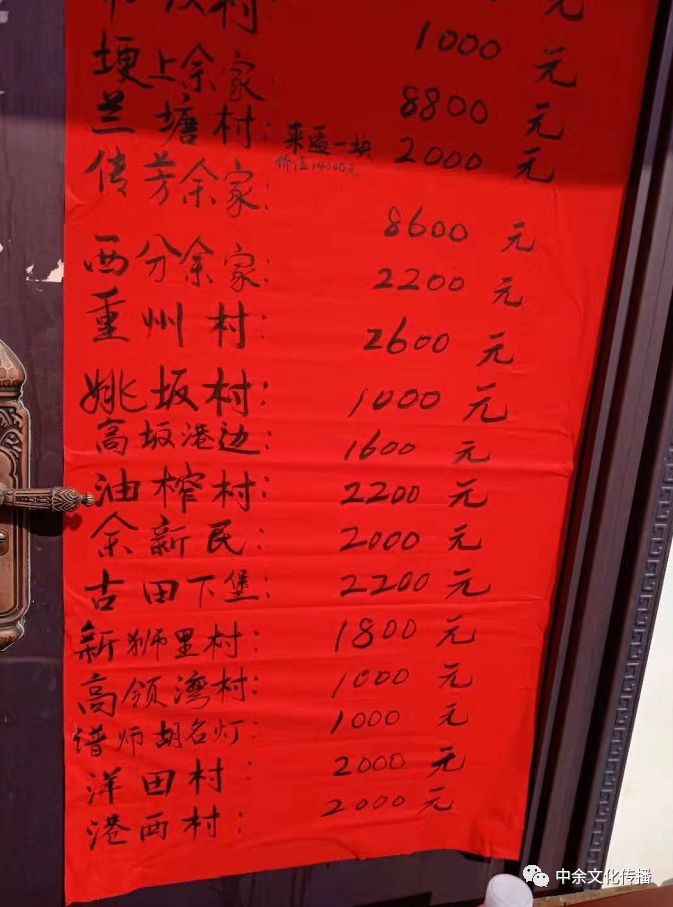 村: 1000 元
埂上余家 8800 元
兰塘村: 2000 元
来匾一块
价值14000元
传芳余家: 8600 元
西分余家: 2200 元
重州村: 2600 元
姚坂村: 1000 元
高坂港边: 1600 元
油榨村: 2200 元
余新民: 2000 元
古田下堡: 2200 元
新狮里村: 1800 元
高领湾村: 1000 元
谱师胡名灯: 1000 元
洋田村: 2000 元
港西村: 2000 元
中余文化传播